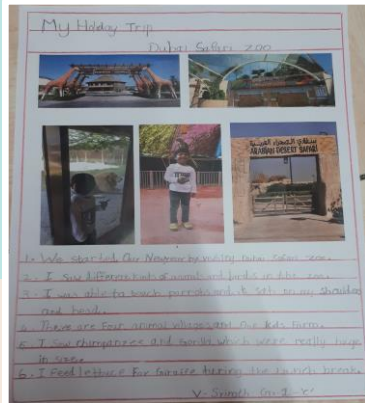 My Holiday Trip
Dubai Safari Zoo
ARABIAN DESERT SAFARI
1. We started Our Newyear by visiting Dubai Safari zoo.
2. I saw different kinds of animals and birds in the zoo.
3. I was able to touch parrots and it sit on my shoulder
and head.
4. There are Four animal villages and One kids Farm.
5. I saw chimpanzee and Gorilla which were really huge
in size.
6. I Feed lettuce For Giraffe during the lunch break.